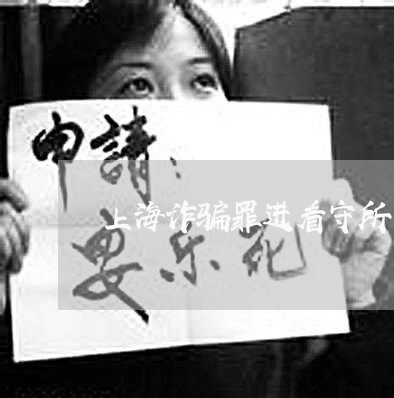 申請：
上海诈骗罪进看守所
安乐死